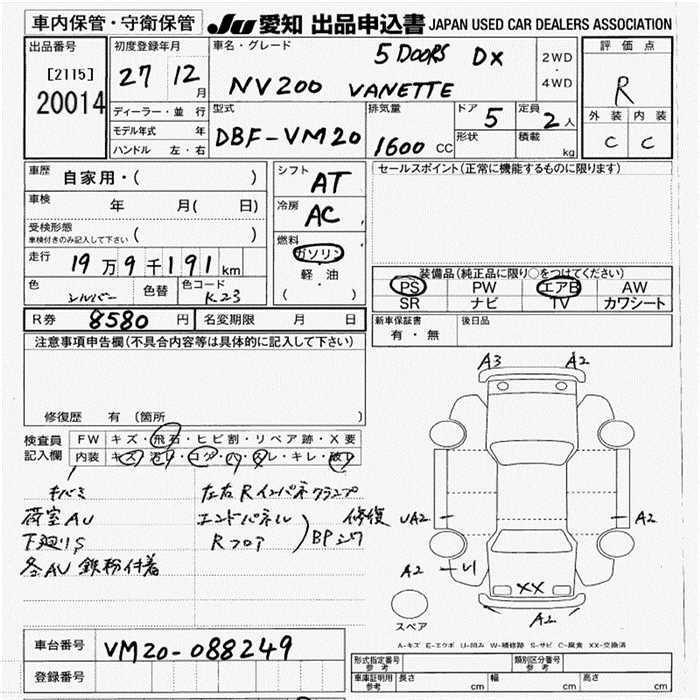 車内保管・守衛保管
JU 愛知 出品申込書 JAPAN USED CAR DEALERS ASSOCIATION
出品番号
[2115]
20014
初度登録年月
27 12月
車名・グレード
5 DOORS DX
NV200 VANETTE
2WD
・
4WD
評価点
R
外装 内装
C C
ディーラー・並行
モデル年式 年
ハンドル 左・右
型式
DBF-VM20
排気量
1600 CC
ドア 5
形状
定員 2人
積載 kg
車歴 自家用・( )
車検 年 月( 日)
受検形態
車検付きのみ記入して下さい ( )
走行 19万9千191km
色 シルバー 色替 色コード K23
シフト AT
冷房 AC
燃料
ガソリン
軽・油
( )
セールスポイント(正常に機能するものに限ります)
装備品(純正品に限り○をつけてください)
PS PW エアB AW
SR ナビ TV カワシート
R券 8580円 名変期限 月 日
新車保証書
有・無
後日品
注意事項申告欄(不具合内容等は具体的に記入して下さい)
修復歴 有 (箇所 )
検査員
記入欄
FW キズ・飛石・ヒビ割・リペア跡・X要
内装
キバミ
荷室AU
下廻りS
各AU 鉄粉付着
左右Rインパネクランプ
エンドパネル
Rフロア
BPシワ
修復
A3 A2
UA2 A2
A2 U1
XX
A2
スペア
A-キズ E-エクボ U-凹み W-補修跡 S-サビ C-腐食 XX-交換済
車台番号 VM20-088249
登録番号
形式指定番号
参考
類別区分番号
参考
車庫証明用
参考
長さ cm 幅 cm 高さ cm